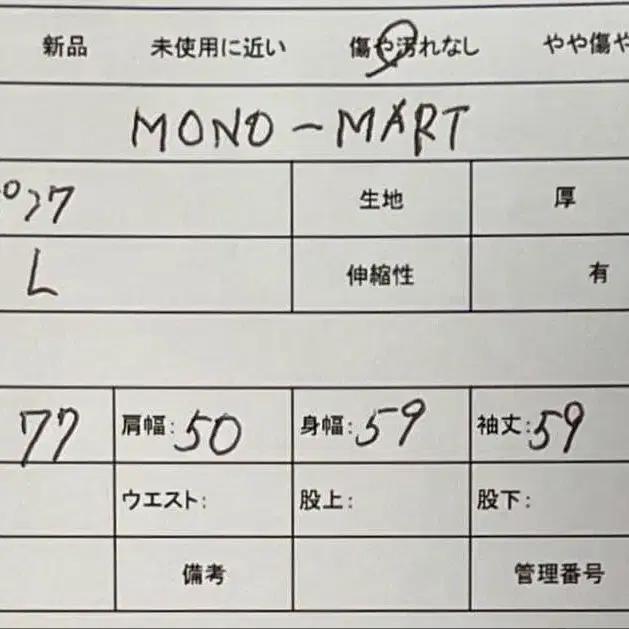 新品 未使用に近い 傷や汚れなし やや傷や
MONO-MART
生地 厚
L 伸縮性 有
77 肩幅:50 身幅:59 袖丈:59
ウエスト: 股上: 股下:
備考 管理番号